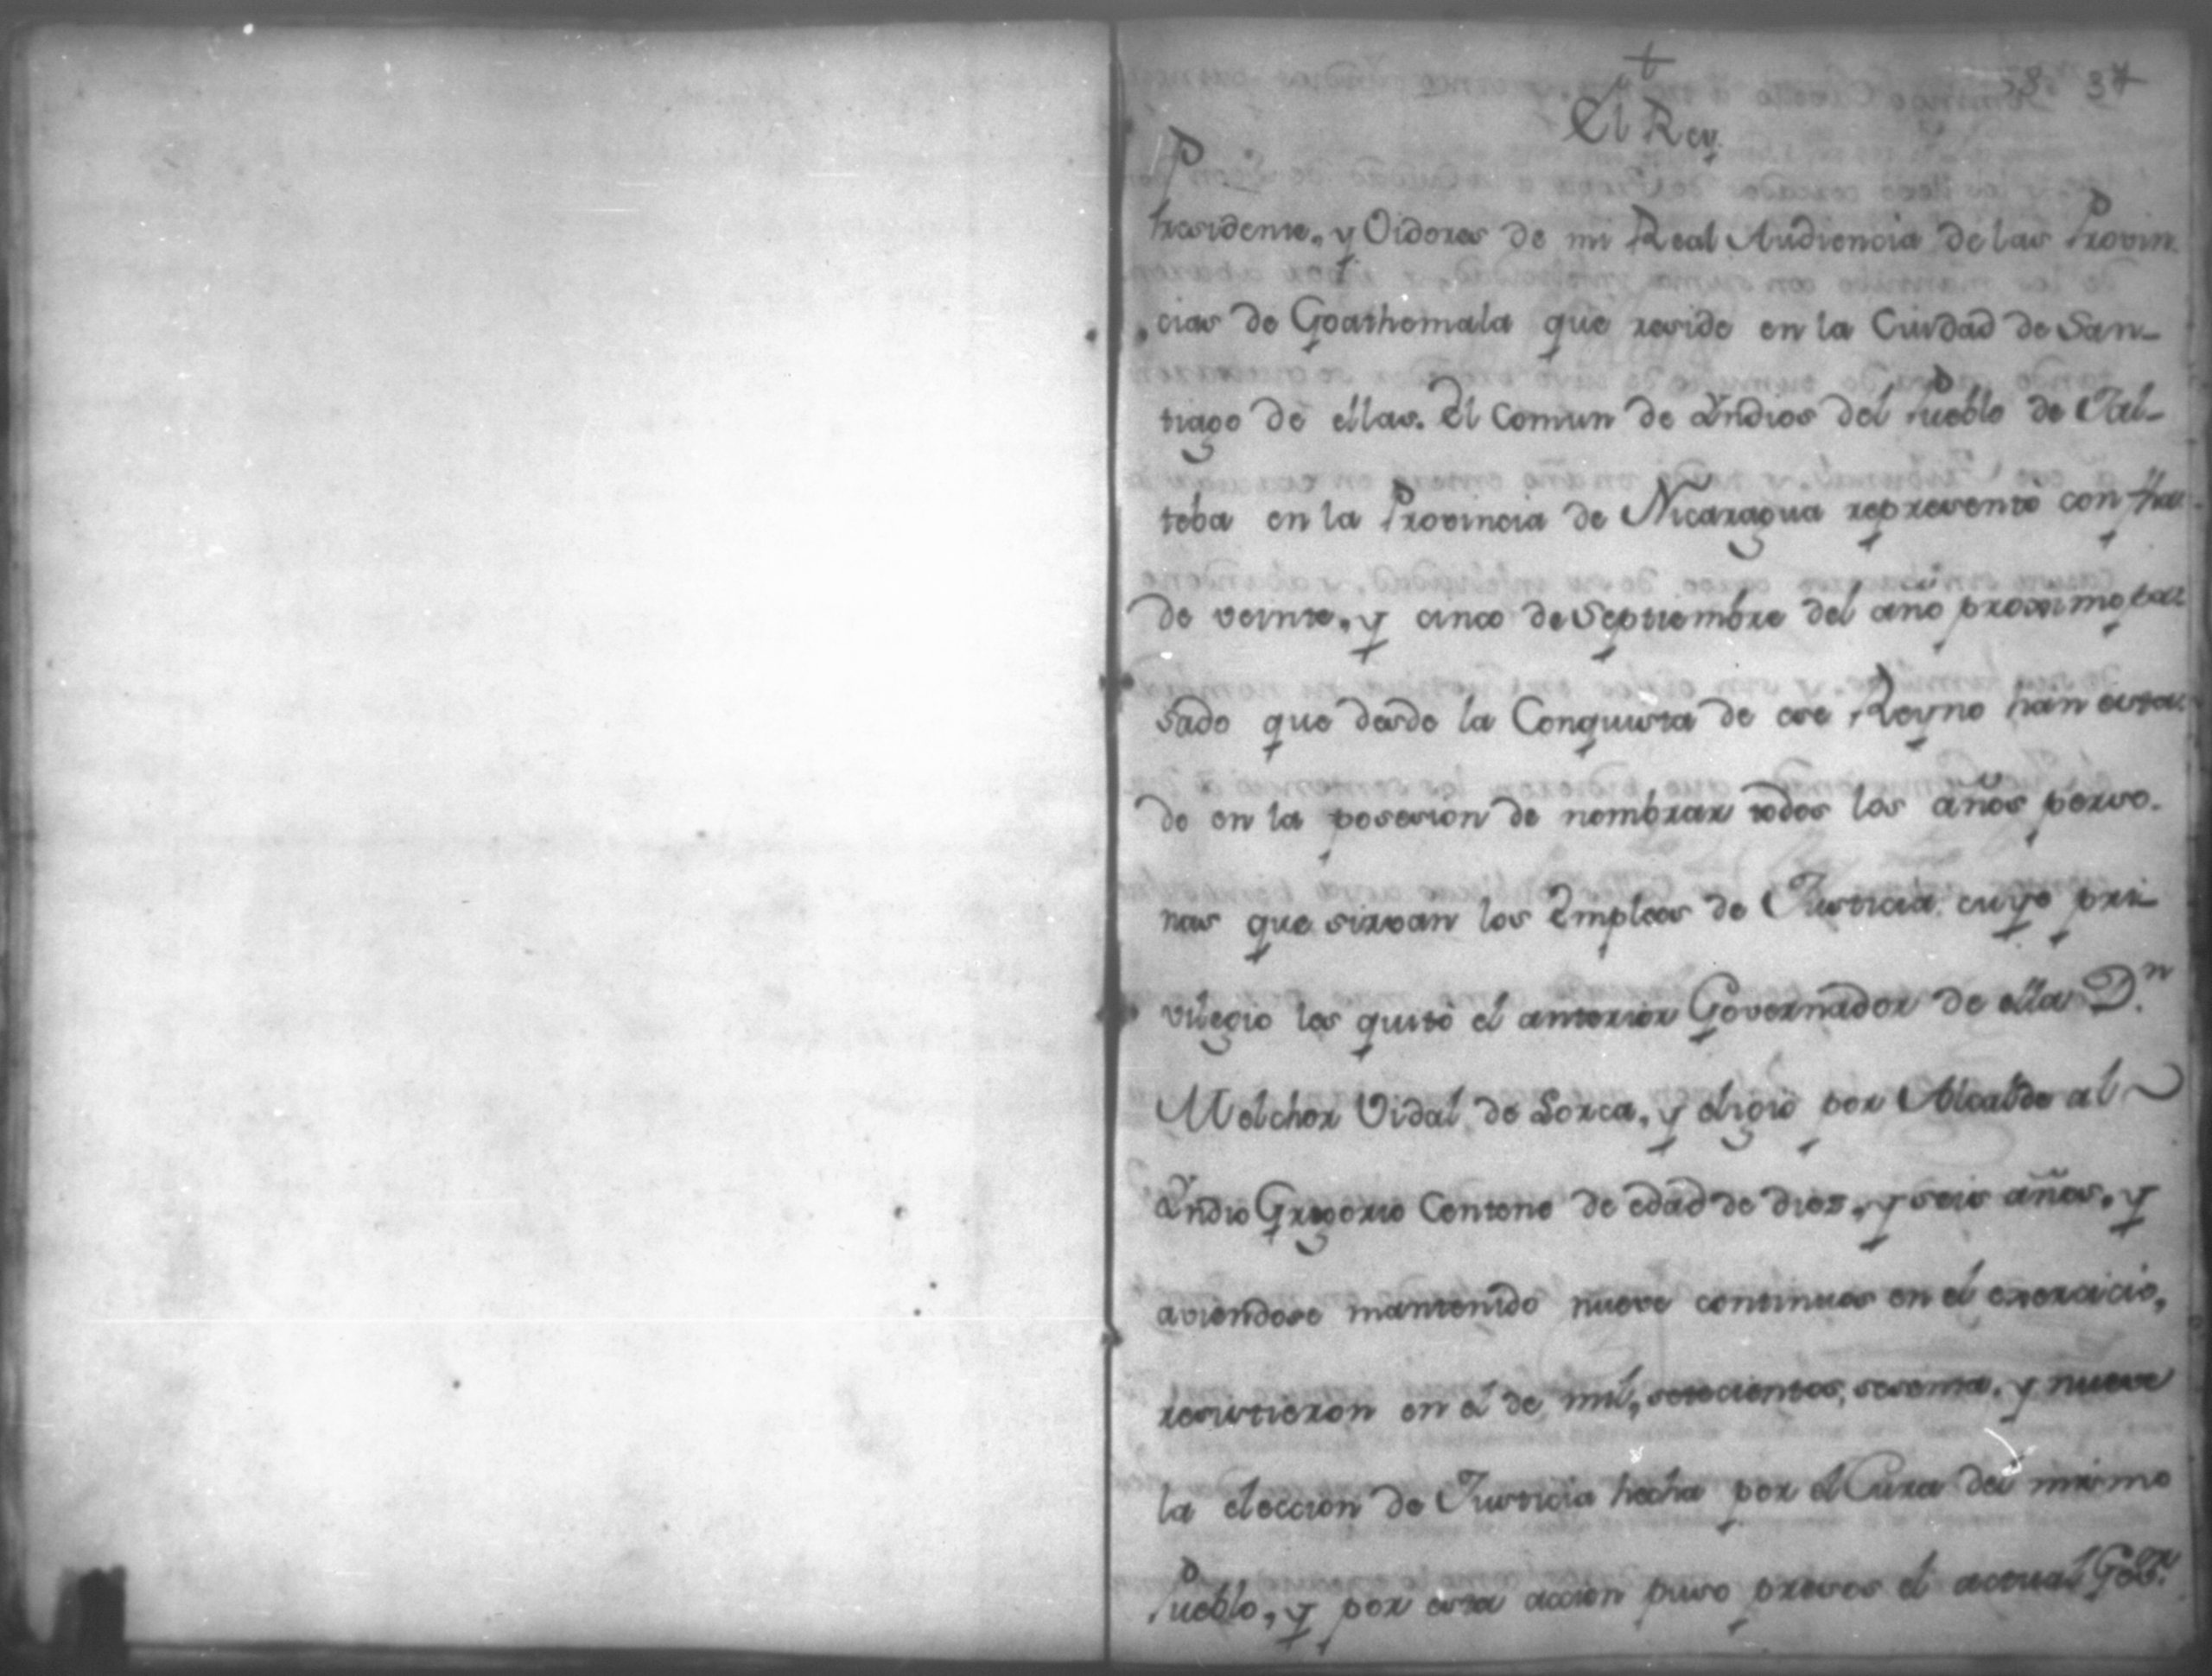 +
58. 37
El Rey
Presidente, y Oidores de mi Real Audiencia de las Provin
cias de Goathemala que reside en la Ciudad de San-
tiago de ellas. El Comun de Yndios del Pueblo de Jal-
teba en la Provincia de Nicaragua represento con fha
de veinte, y cinco de Septiembre del año proximo pa
sado que desde la Conquista de ese Reyno han esta-
do en la posesion de nombrar todos los años perso-
nas que sirvan los Empleos de Justicia cuyo pri-
vilegio les quitó el anterior Governador de ella D.n
Melchor Vidal de Lorca, y eligio por Alcalde al
Yndio Gregorio Centeno de edad de diez, y seis años, y
aviendose mantenido nueve continuos en el exercicio,
resistieron en el de mil, setecientos, sesenta, y nueve
la eleccion de Justicia hecha por el Cura del mismo
Pueblo, y por esta accion puso presos el actual Gov.or